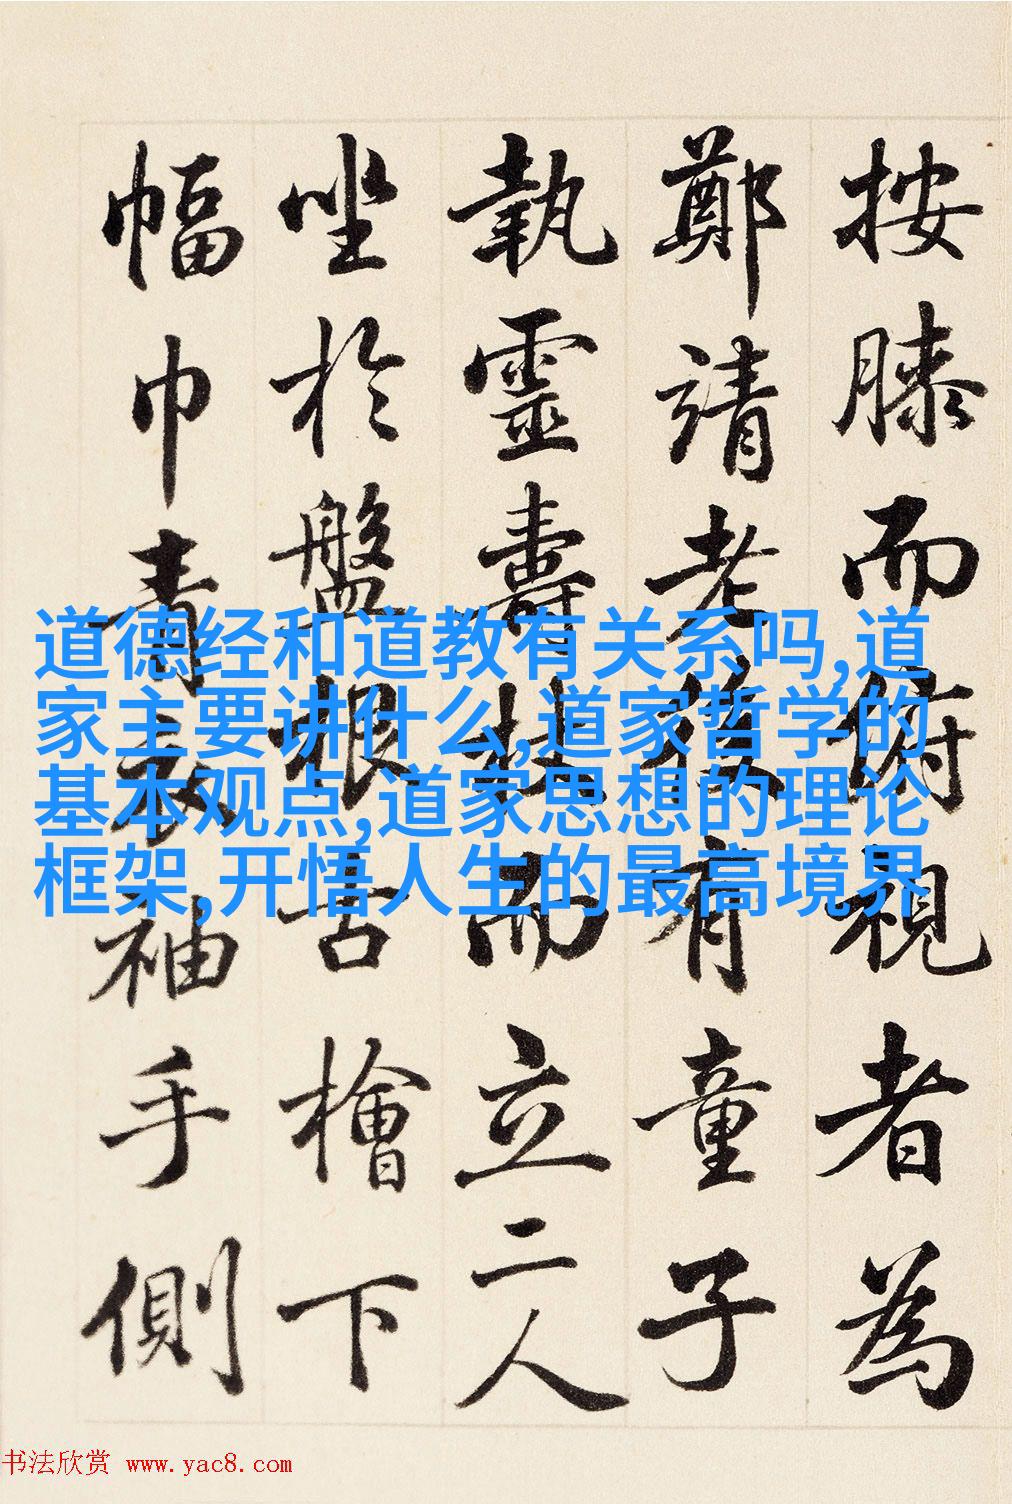 按膝而俯視者為
鄭靖老後有童子
執靈壽杖而立二人
坐於盤根古檜下
幅巾青衣袖手側
道德经和道教有关系吗,道
家主要讲什么,道家哲学的
基本观点,道家思想的理论
框架,开悟人生的最高境界
书法欣赏 www.yac8.com